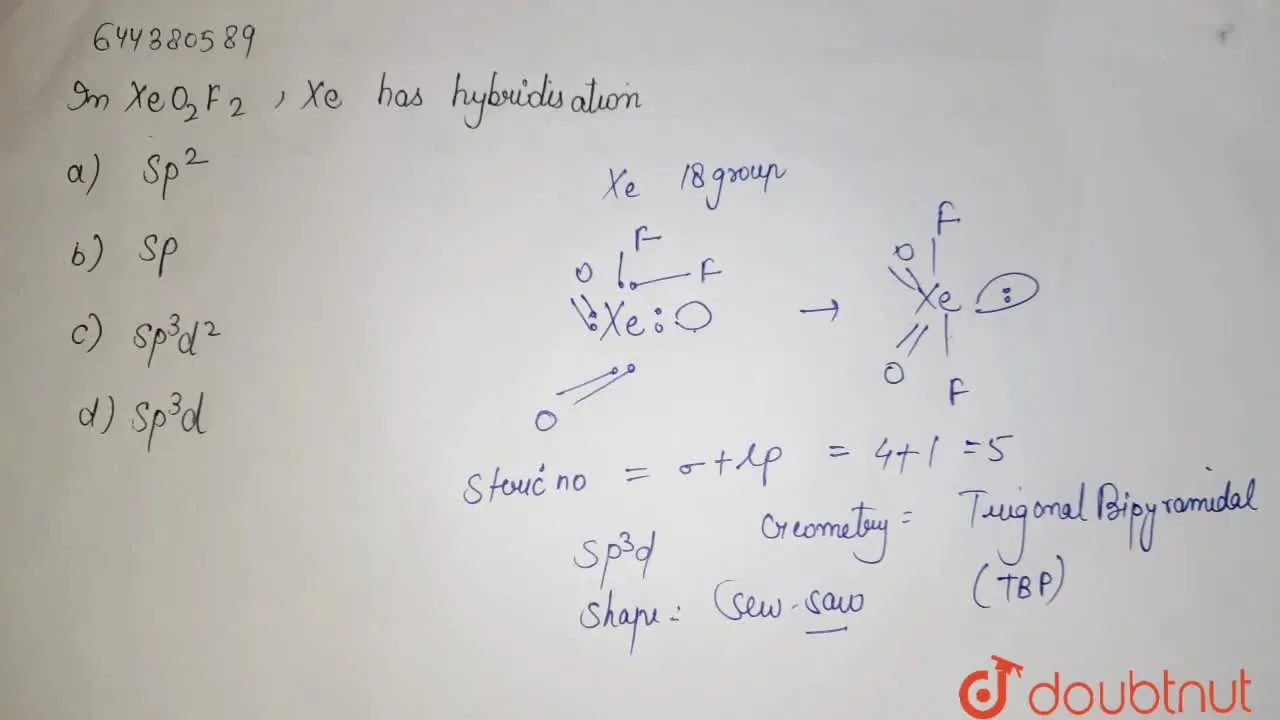 644380589
In XeO2F2 , Xe has hybridisation
a) Sp2
b) Sp
c) Sp3d2
d) Sp3d
Xe 18 group
F
O F
Xe
O
F
O
Xe
O
F
Steric no = σ + lp = 4 + 1 = 5
Sp3d Geometry = Trigonal Bipyramidal
(TBP)
Shape : (sew-saw
doubtnut